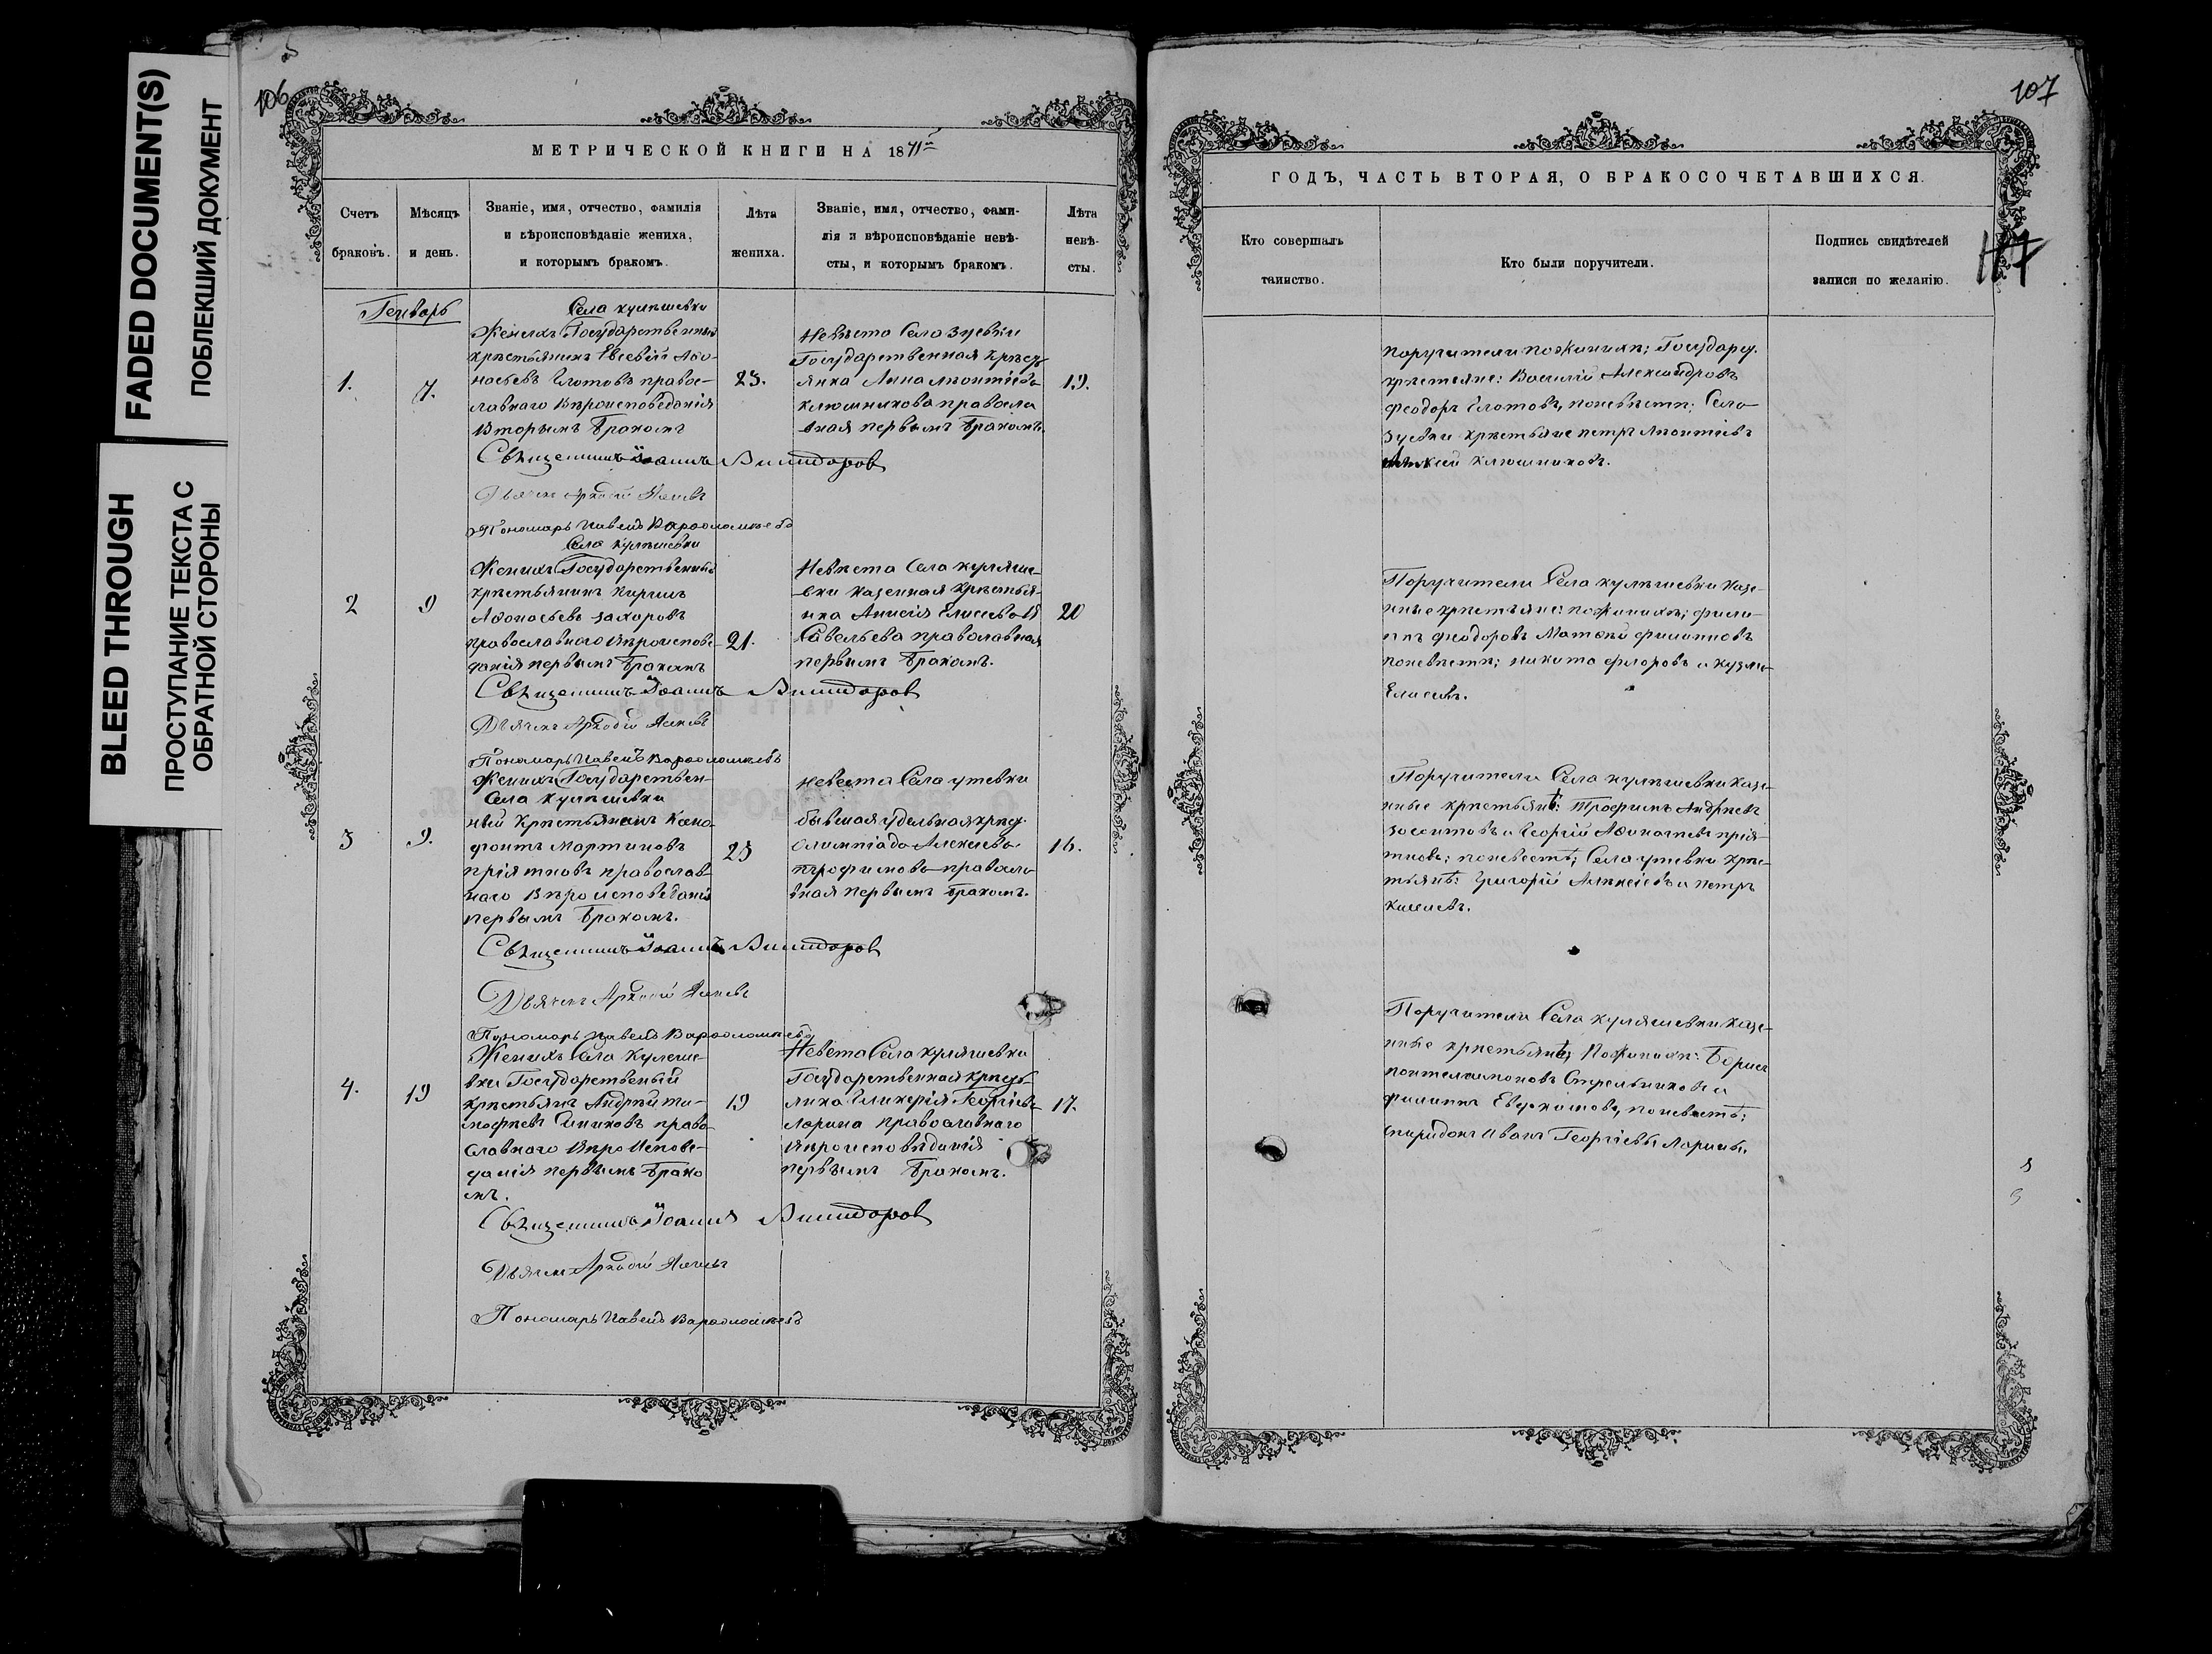 FADED DOCUMENT(S)
ПОБЛЕКШИЙ ДОКУМЕНТ
BLEED THROUGH
ПРОСТУПАНИЕ ТЕКСТА С
ОБРАТНОЙ СТОРОНЫ
106
МЕТРИЧЕСКОЙ КНИГИ НА 1871
Счетъ браковъ.
Мѣсяцъ и день.
Званіе, имя, отчество, фамилія
и вѣроисповѣданіе жениха,
и которымъ бракомъ.
Лѣта жениха.
Званіе, имя, отчество, фами-
лія и вѣроисповѣданіе невѣ-
сты, и которымъ бракомъ.
Лѣта невѣ-
сты.
Генварь
1.
7.
Села кулѣшевки
Женихъ Государственный
крѣстьянинъ Евсевій Аѳо-
насьевъ Глотовъ правос-
лавнаго Вѣроисповѣданія
Вторымъ Бракомъ
23.
Невѣста Села Зуевки
Государственная крѣсть
янка Анна Леонтіева
Клюшникова правосла
вная первымъ Бракомъ.
19.
Священникъ Іоаннъ
Дьячекъ Аркадій
Пономарь Павелъ Варѳоломѣевъ
2
9
Села Кулѣшевки
Женихъ Государственный
крѣстьянинъ Кирилъ
Аѳонасьевъ Захоровъ
православнаго Вѣроисповѣ-
данія первымъ Бракомъ
21.
Невѣста Села кулѣше-
вки казенная крѣстья-
нка Анисія Елисѣева
Савельева православная
первымъ Бракомъ.
20
Священникъ Іоаннъ
Дьячекъ Аркадій
Пономарь Павелъ Варѳоломѣевъ
3
9.
Женихъ Государствен-
Села Кулѣшевки
ный Крѣстьянинъ Ксено-
фонтъ Мартиновъ
Пріятновъ православ-
наго Вѣроисповеданія
первымъ Бракомъ.
23
Невеста Села утевки
бывшая удельная крест.
Олимпіада Алексіева
Трофимова правосла
вная первымъ Бракомъ.
16.
Священникъ Іоаннъ
Дьячекъ Аркадій
Пономарь Павелъ Варѳоломѣевъ
4.
19
Женихъ Села Кулеше-
вки Государственый
крѣстьянъ Андрѣй Ти-
мофѣевъ право-
славнаго Вѣроиспове-
данія первымъ Брако
мъ.
19
Невѣста Села кулѣшевки
Государственная крѣсть
янка Гликерія Георгіева
Ларина православнаго
Вѣроисповѣданія
первымъ Бракомъ.
17.
Священникъ Іоаннъ
Дьячекъ Аркадій
Пономарь Павелъ Варѳоломѣевъ
107
117
ГОДЪ, ЧАСТЬ ВТОРАЯ, О БРАКОСОЧЕТАВШИХСЯ.
Кто совершалъ
таинство.
Кто были поручители.
Подпись свидѣтелей
записи по желанію.
Поручители пожинихѣ: Государс.
крѣстьяне: Василій Александровъ
Феодоръ Глотовъ, поневѣстѣ: Села
Зуевки крѣстьяне петръ Леонтіевъ
Клюшниковъ.
Поручители Села кулѣшевки казе-
нные крѣстьяне: пожинихѣ; фили-
пъ феодоровъ Матвѣй филиповъ
поневѣстѣ; никита флоровъ и кузма
Елисеевъ.
Поручители Села кулѣшевки казе-
нные крѣстьянѣ: Трофимъ Андрѣевъ
и Георгій Аѳонасьевъ прія-
тновъ; поневестѣ; Села утевки крѣс-
тьянѣ: Григорій Алѣксіевъ и петръ
Поручители Села кулѣшевки казе-
нные крѣстьянѣ; Пожинихѣ: Борисъ
понтелимоновъ Стрельниковъ и
филипъ Евдокимовъ, поневѣстѣ:
Спиридонъ Иванъ Георгіевы Ларины.